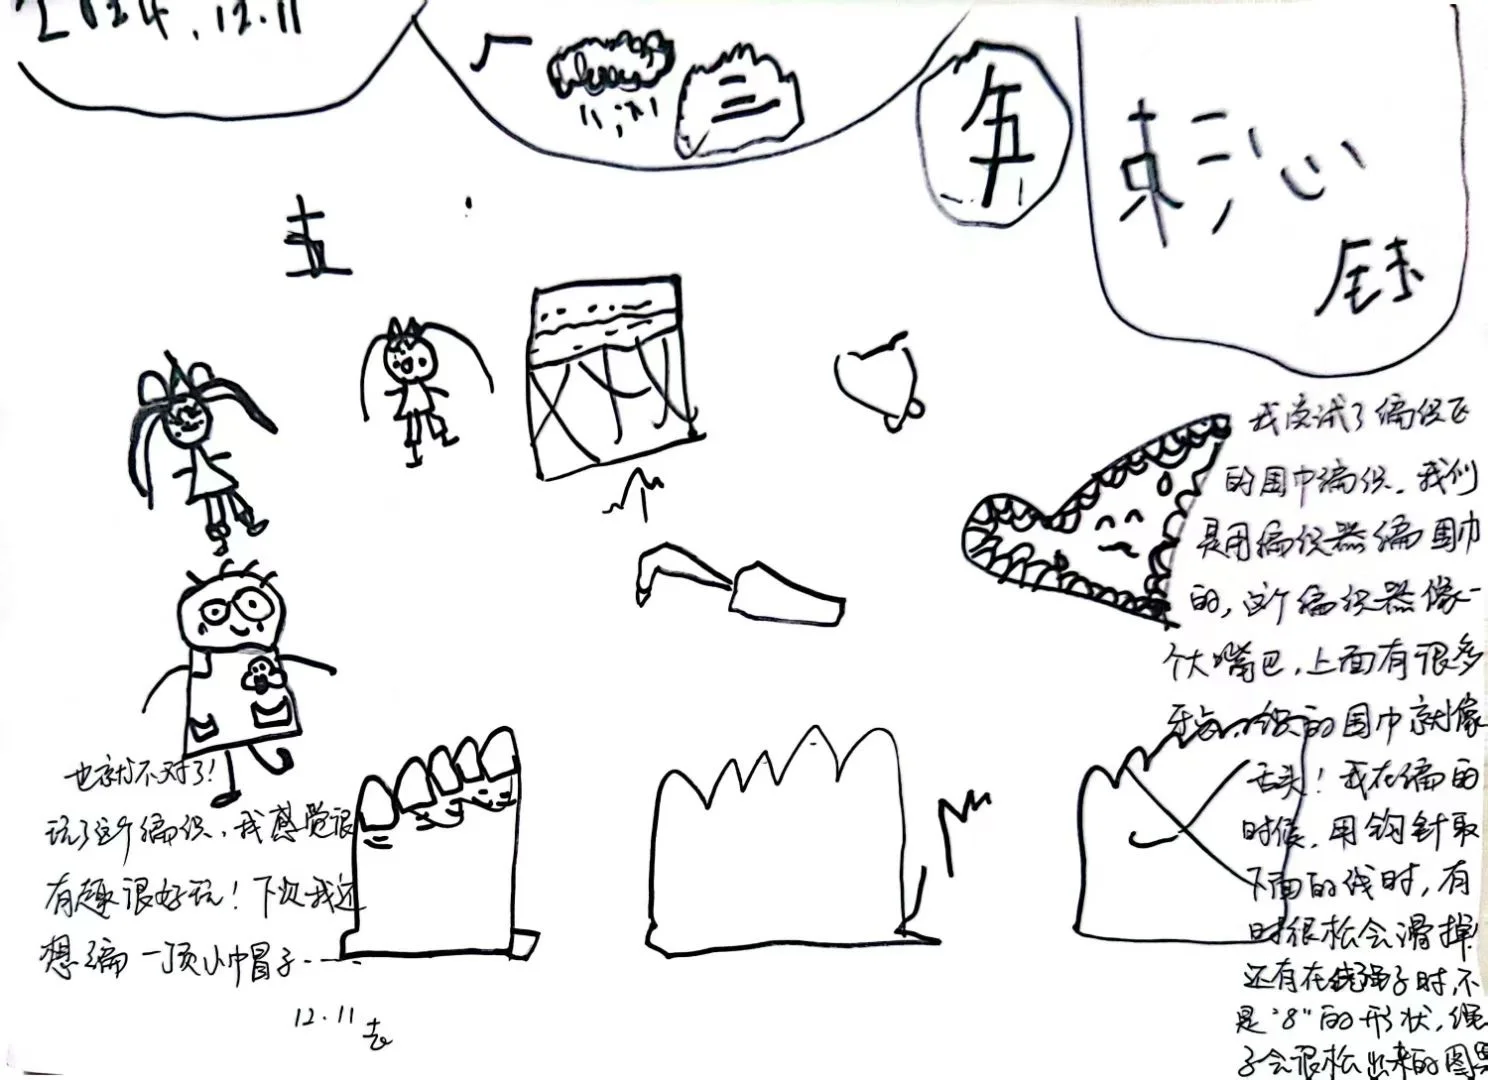 2024.12.11
三
我尝试了编织区
的围巾编织.我们
是用编织器编围巾
的,这个编织器像一
个大嘴巴,上面有很多
牙齿,织的围巾就像
舌头!我在编的
时候,用钩针取
下面的线时,有
时很松会滑掉
还有在绕绳子时,不
是"8"的形状,绳
子会很松出来的图案
也就不对了!
玩了这个编织,我感觉很
有趣很好玩!下次我还
想编一顶小巾冒子...
12.11